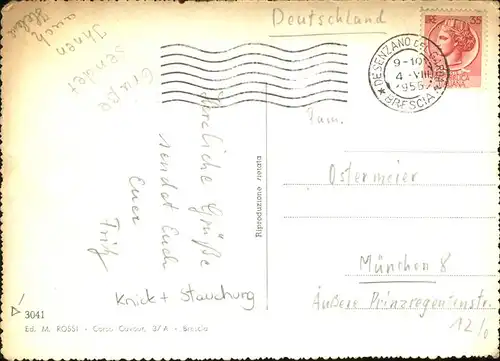 Deutschland
LIRE 35
DESENZANO DEL GARDA
9-10
4-VIII
1956
* BRESCIA *
auch
Ihnen
sendet
Grüße
Herzliche Grüße
sendet Euch
Euer
Fritz
Knick + Stauchung
Riproduzione vietata
Fam.
Ostermeier
München 8
Äußere Prinzregentenstr.
12/0
3041
Ed. M. ROSSI - Corso Cavour, 37A - Brescia